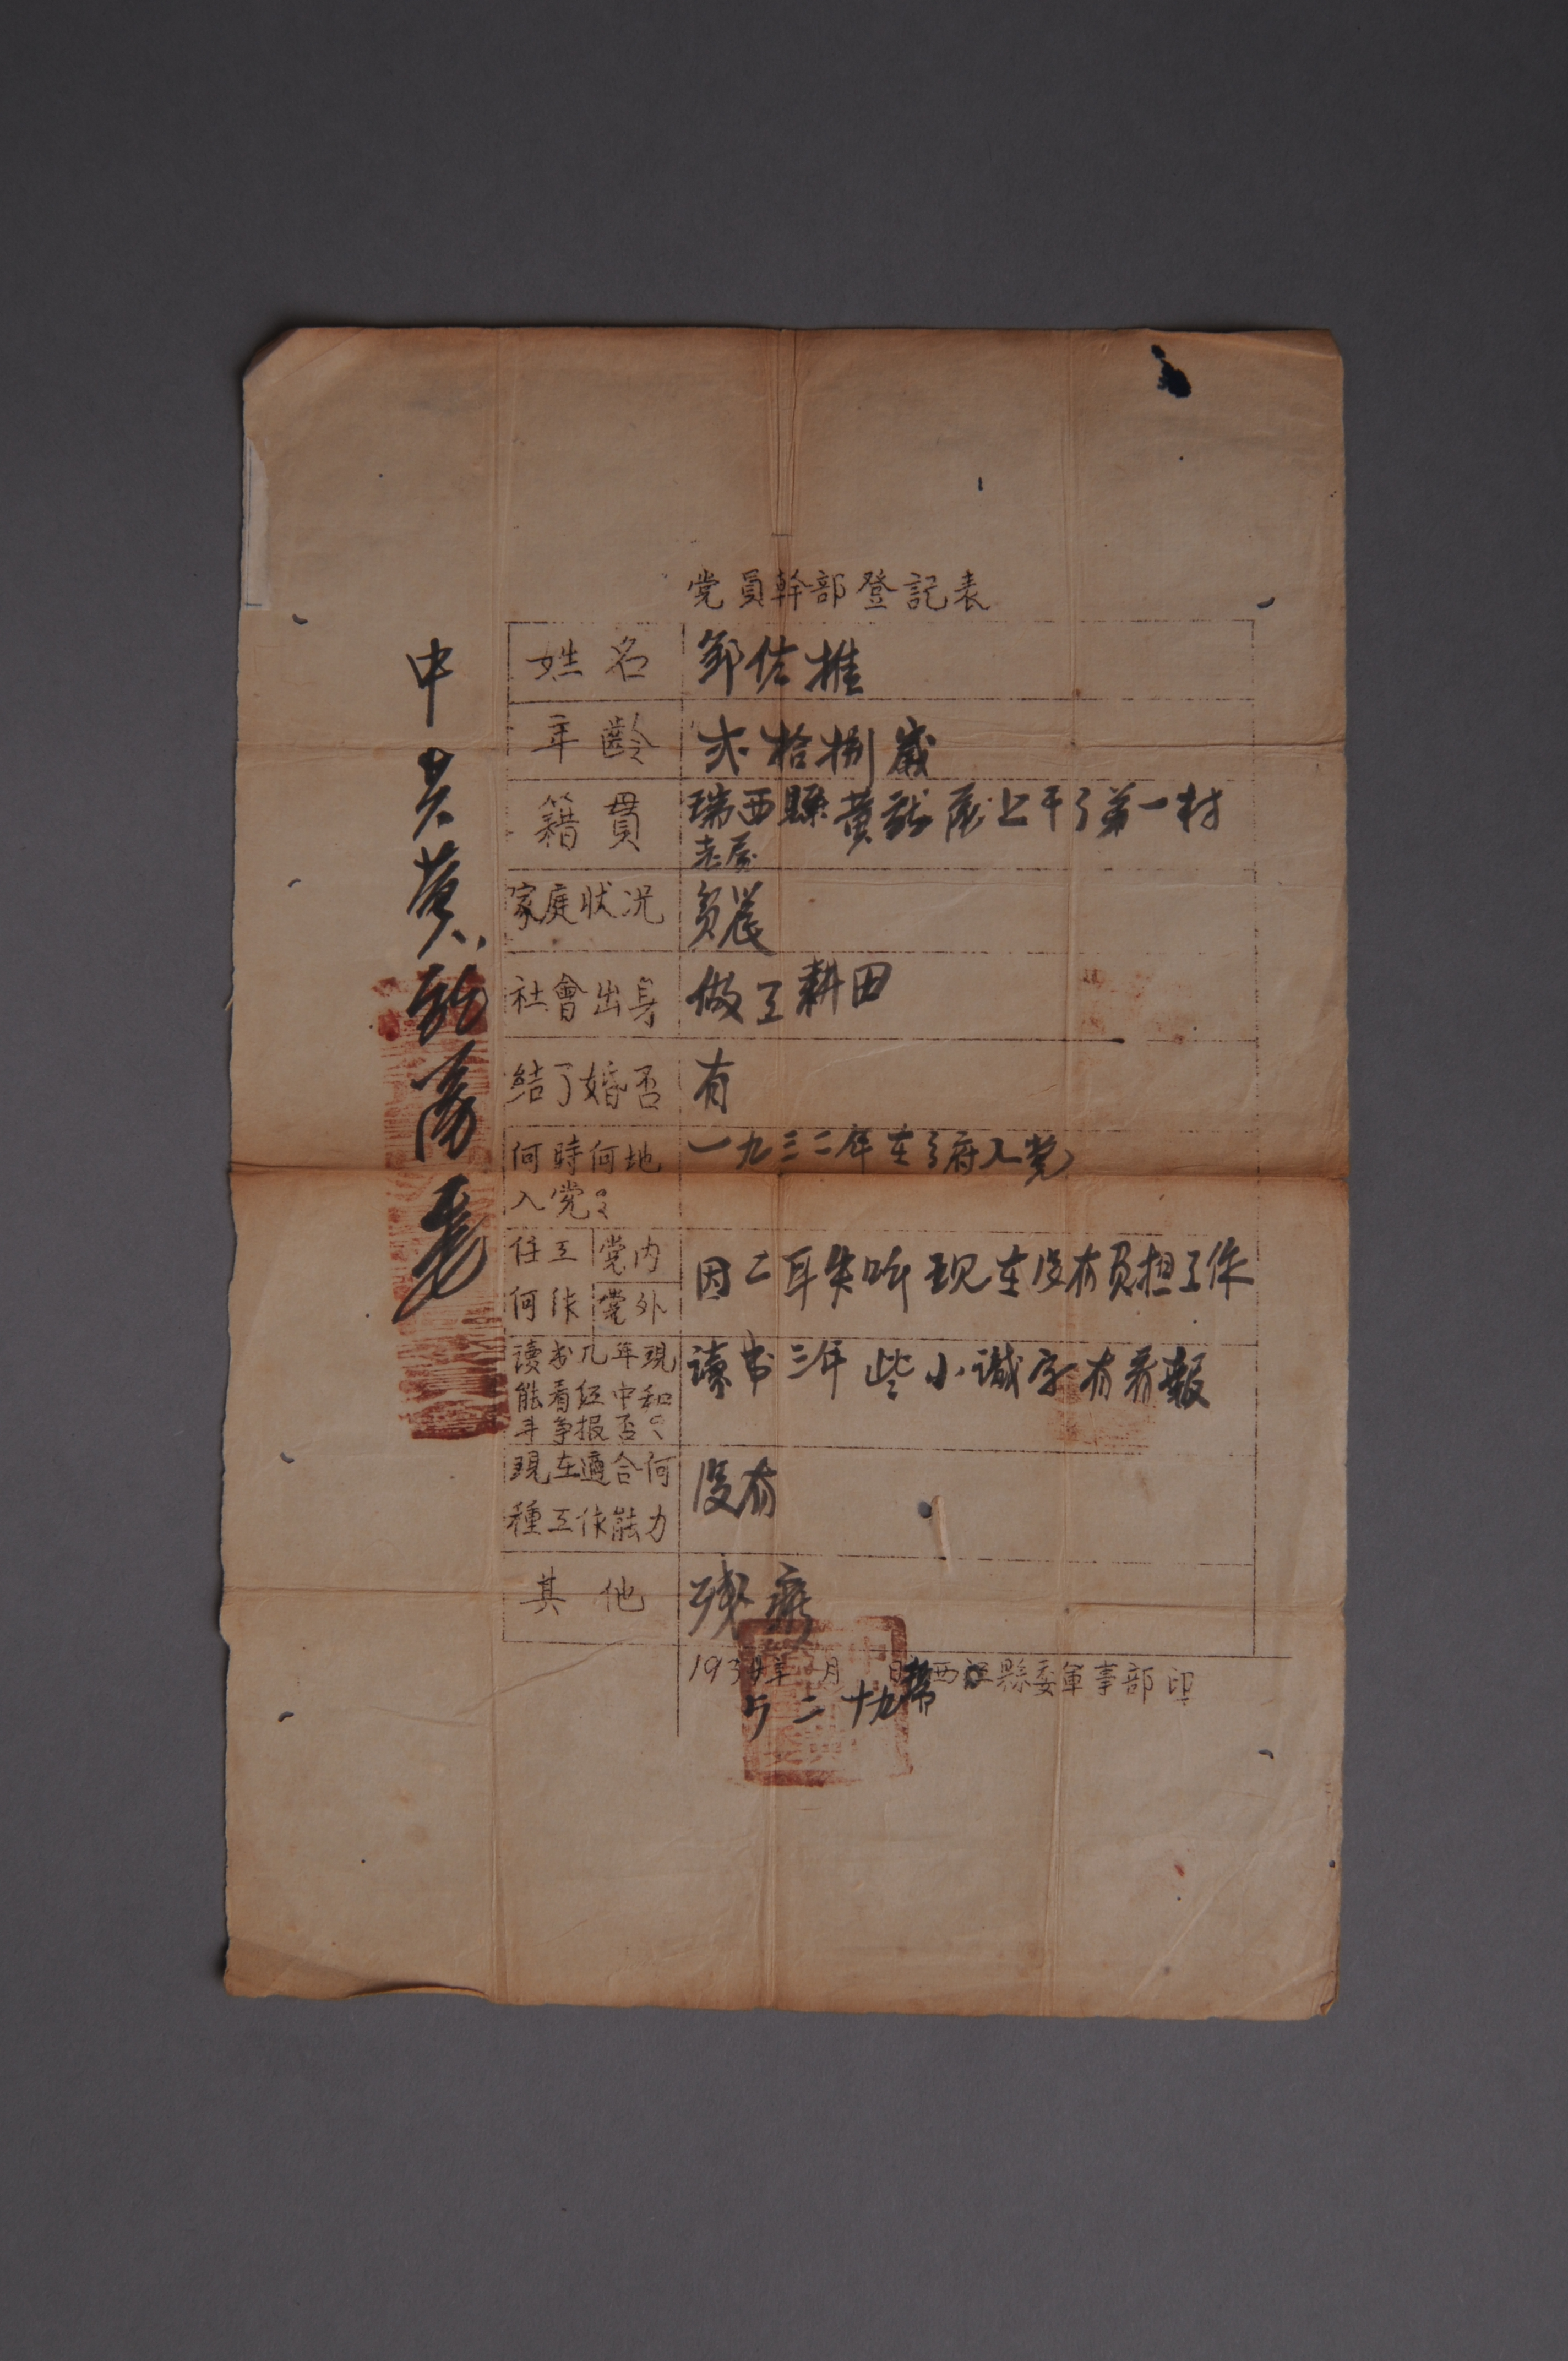 党員幹部登記表
姓名 鄒佐推
年齡 弍拾捌歲
籍貫 瑞西縣黄龍區上干乡第一村
老屋
家庭狀况 貧農
社會出身 做工耕田
結了婚否 有
何時何地入党? 一九三二年在乡府入党
任何工作 党内 党外 因二耳失听现在没有负担工作
读书几年現能看红中和斗争报否? 读书三年些小識字有看報
現在適合何種工作能力 没有
其他 残廢
193年 月 日 西江縣委軍事部印
二 十九
中共黄龍區委